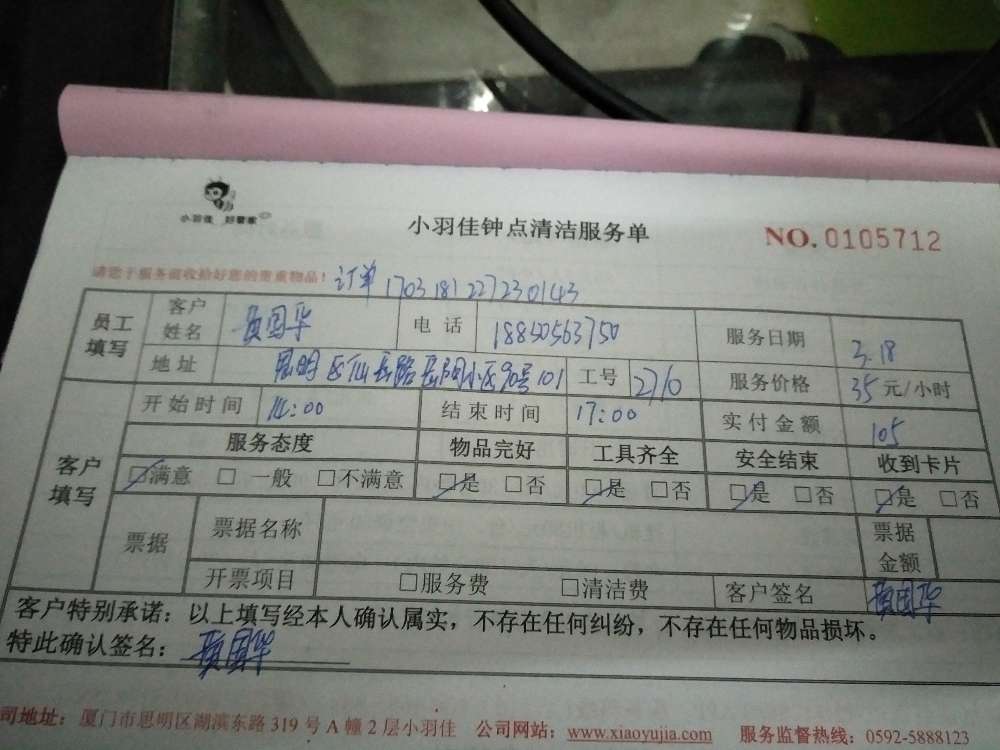 小羽佳 好管家
小羽佳钟点清洁服务单
NO. 0105712
请您于服务前收拾好您的贵重物品!
订单 170318122723 0143
员工填写 客户姓名 国华 电话 18850563750 服务日期 3.18
地址 思明区仙岳路岳阳小区90号101 工号 2710 服务价格 35 元/小时
客户填写 开始时间 14:00 结束时间 17:00 实付金额 105
服务态度 物品完好 工具齐全 安全结束 收到卡片
☑满意 □ 一般 □不满意 ☑是 □否 ☑是 □否 ☑是 □否 ☑是 □否
票据 票据名称 票据金额
开票项目 □服务费 □清洁费 客户签名 国华
客户特别承诺：以上填写经本人确认属实，不存在任何纠纷，不存在任何物品损坏。
特此确认签名： 国华
司地址：厦门市思明区湖滨东路 319 号 A 幢 2 层小羽佳 公司网站：www.xiaoyujia.com 服务监督热线：0592-5888123